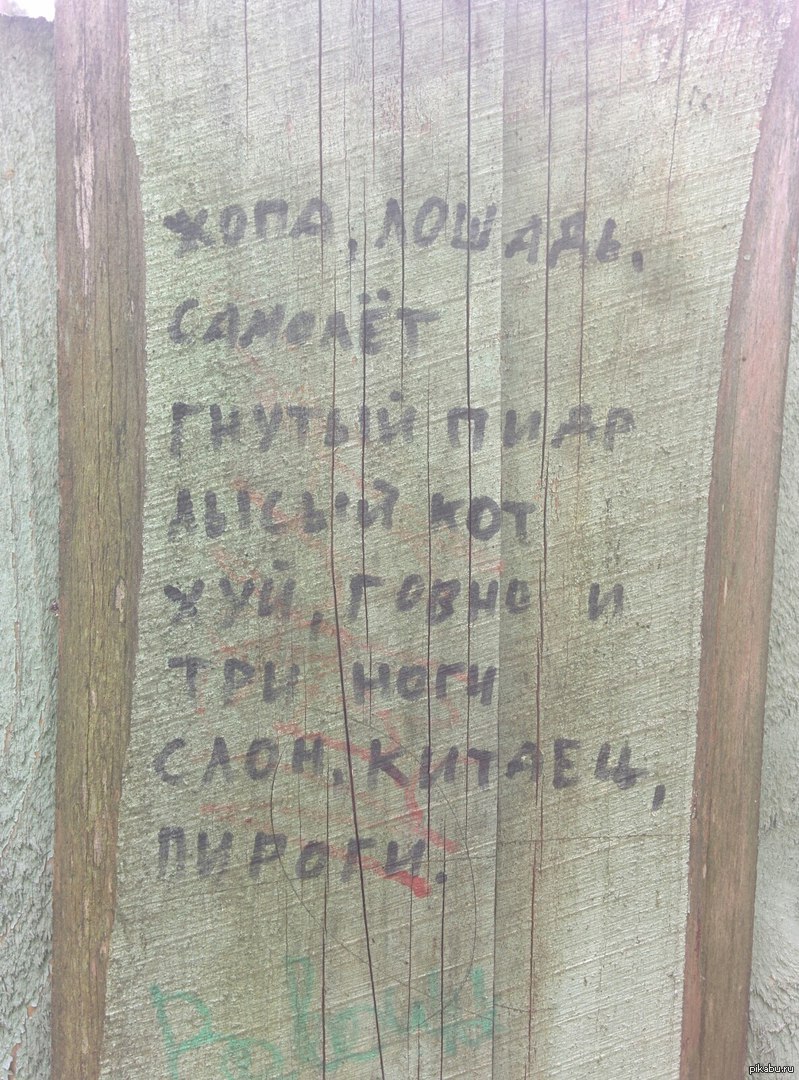 ЖОПА, ЛОШАДЬ,
САМОЛЁТ
ГНУТЫЙ ПИДР
ЛЫСЫЙ КОТ
ХУЙ, ГОВНО И
ТРИ НОГИ
СЛОН, КИТАЕЦ,
ПИРОГИ.
pikabu.ru